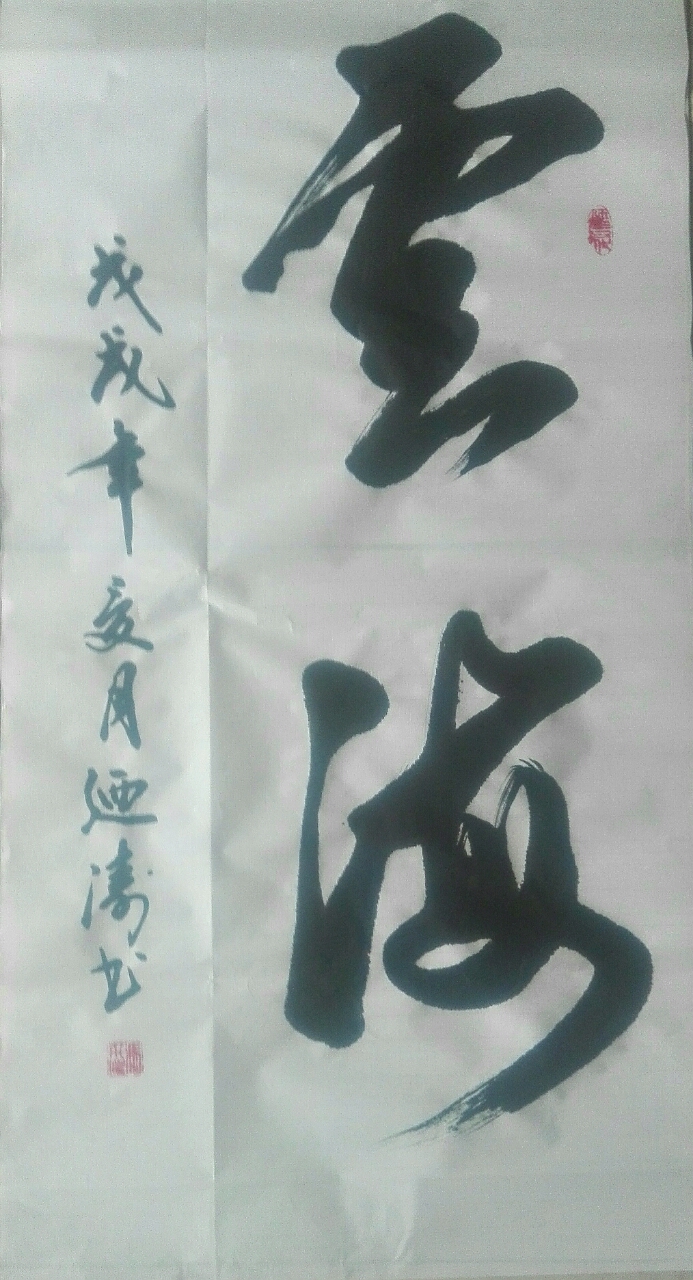 雲海
戊戌年夏月廼涛书